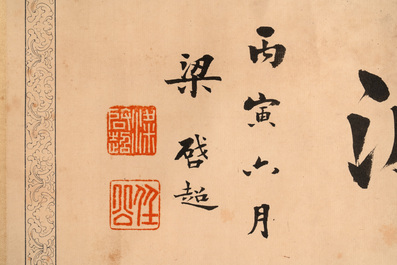 丙寅六月
梁啓超
梁啓超
任公